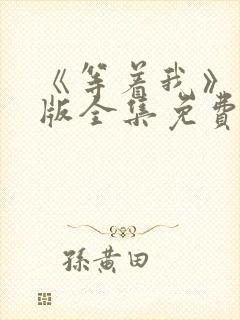 《等着我》
版全集免費
孫黄田